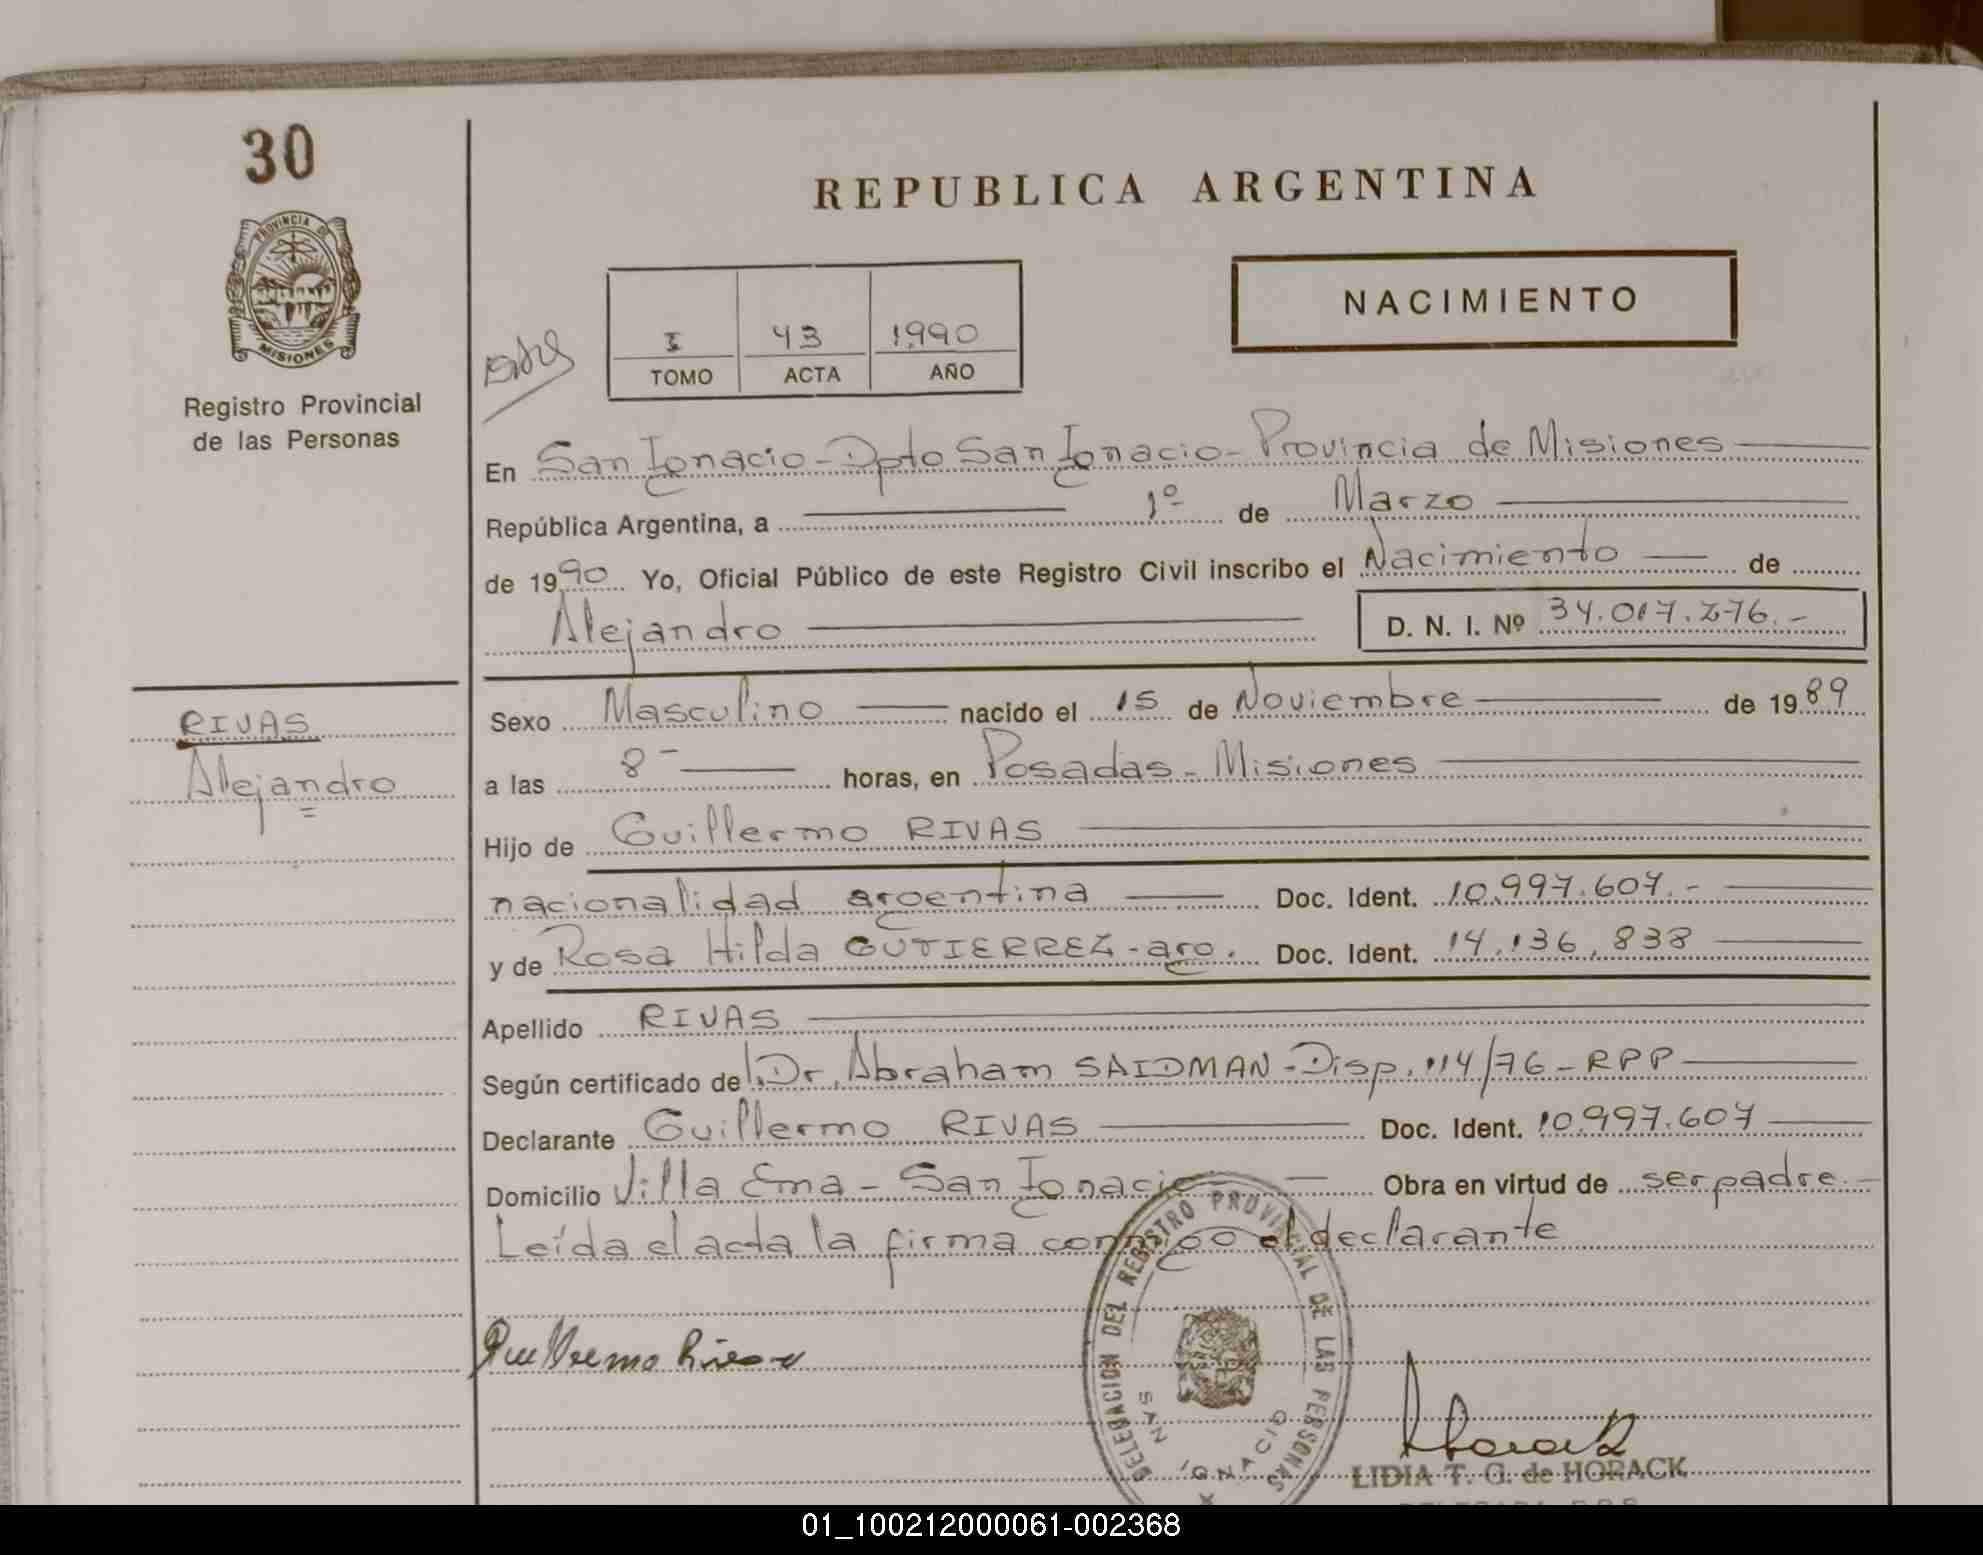 30
PROVINCIA DE
MISIONES
Registro Provincial
de las Personas
REPUBLICA ARGENTINA
NACIMIENTO
I 43 1990
TOMO ACTA AÑO
En San Ignacio - Dpto San Ignacio - Provincia de Misiones
República Argentina, a 1º de Marzo
de 1990 Yo, Oficial Público de este Registro Civil inscribo el Nacimiento de
Alejandro D. N. I. Nº 34.017.276.-
RIVAS
Alejandro
Sexo Masculino nacido el 15 de Noviembre de 1989
a las 8- horas, en Posadas - Misiones
Hijo de Guillermo RIVAS
nacionalidad argentina Doc. Ident. 10.997.607.-
y de Rosa Hilda GUTIERREZ - arg. Doc. Ident. 14.136.838
Apellido RIVAS
Según certificado del Dr. Abraham SAIDMAN - Disp. 114/76 - RPP
Declarante Guillermo RIVAS Doc. Ident. 10.997.607
Domicilio Villa Ema - San Ignacio Obra en virtud de ser padre.-
Leída el acta la firma conmigo el declarante
Guillermo Rivas
DELEGACION DEL REGISTRO PROVINCIAL DE LAS PERSONAS
SAN IGNACIO
LIDIA T. G. de HORACK
01_100212000061-002368